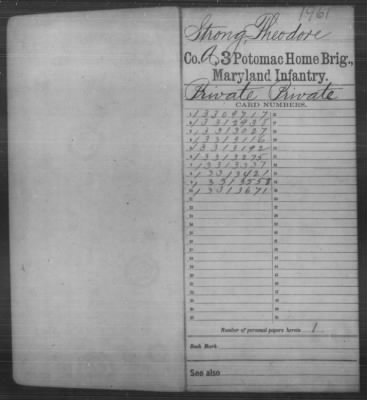 1961
Strong, Theodore
Co. A, 3 Potomac Home Brig.,
Maryland Infantry.
Private Private
CARD NUMBERS.
1 13309717
2 13312935
3 13313027
4 13313116
5 13313192
6 13313275
7 13313337
8 13313421
9 13313558
10 13313671
Number of personal papers herein 1
Book Mark
See also